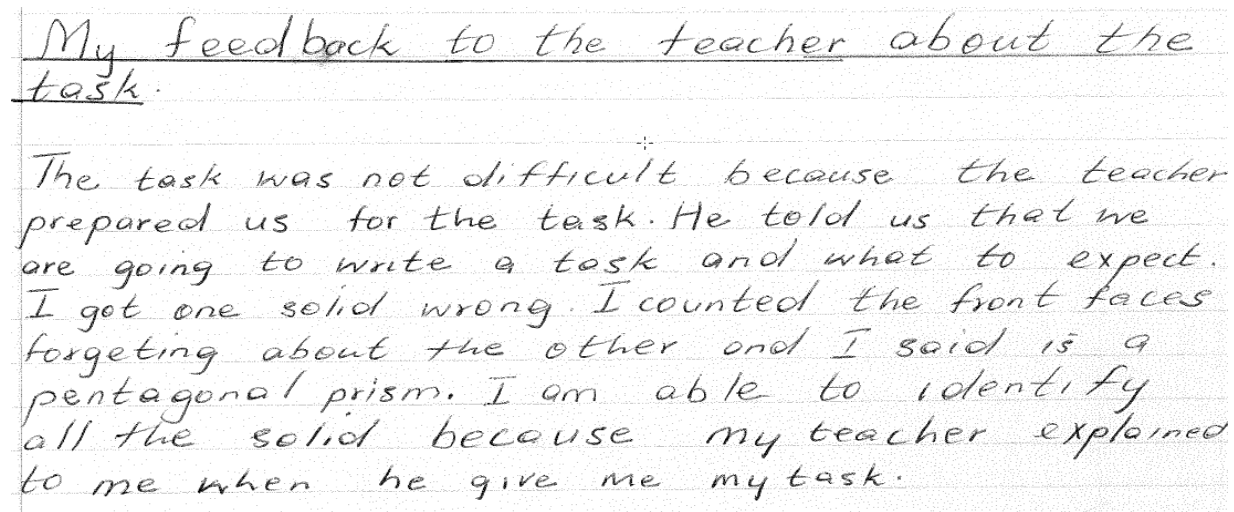 My feedback to the teacher about the
task.
The task was not difficult because the teacher
prepared us for the task. He told us that we
are going to write a task and what to expect.
I got one solid wrong. I counted the front faces
forgeting about the other and I said is a
pentagonal prism. I am able to identify
all the solid because my teacher explained
to me when he give me my task.